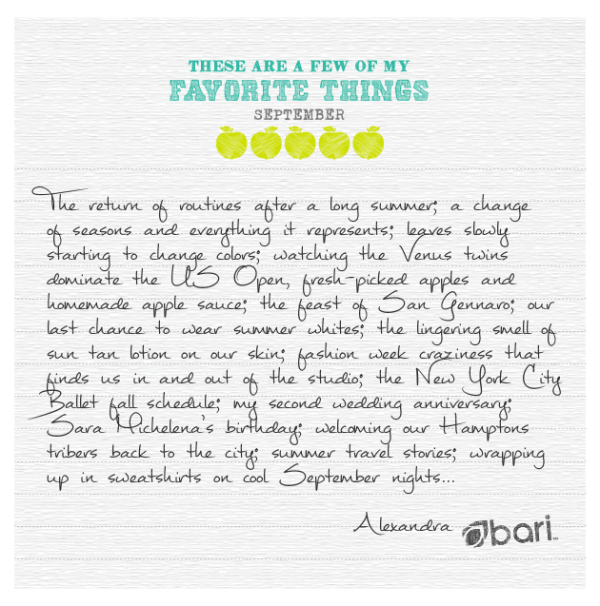 THESE ARE A FEW OF MY
FAVORITE THINGS
SEPTEMBER
The return of routines after a long summer; a change
of seasons and everything it represents; leaves slowly
starting to change colors; watching the Venus twins
dominate the US Open, fresh-picked apples and
homemade apple sauce; the feast of San Gennaro; our
last chance to wear summer whites; the lingering smell of
sun tan lotion on our skin; fashion week craziness that
finds us in and out of the studio; the New York City
Ballet fall schedule; my second wedding anniversary;
Sara Michelena's birthday; welcoming our Hamptons
tribers back to the city; summer travel stories; wrapping
up in sweatshirts on cool September nights...
Alexandra bari